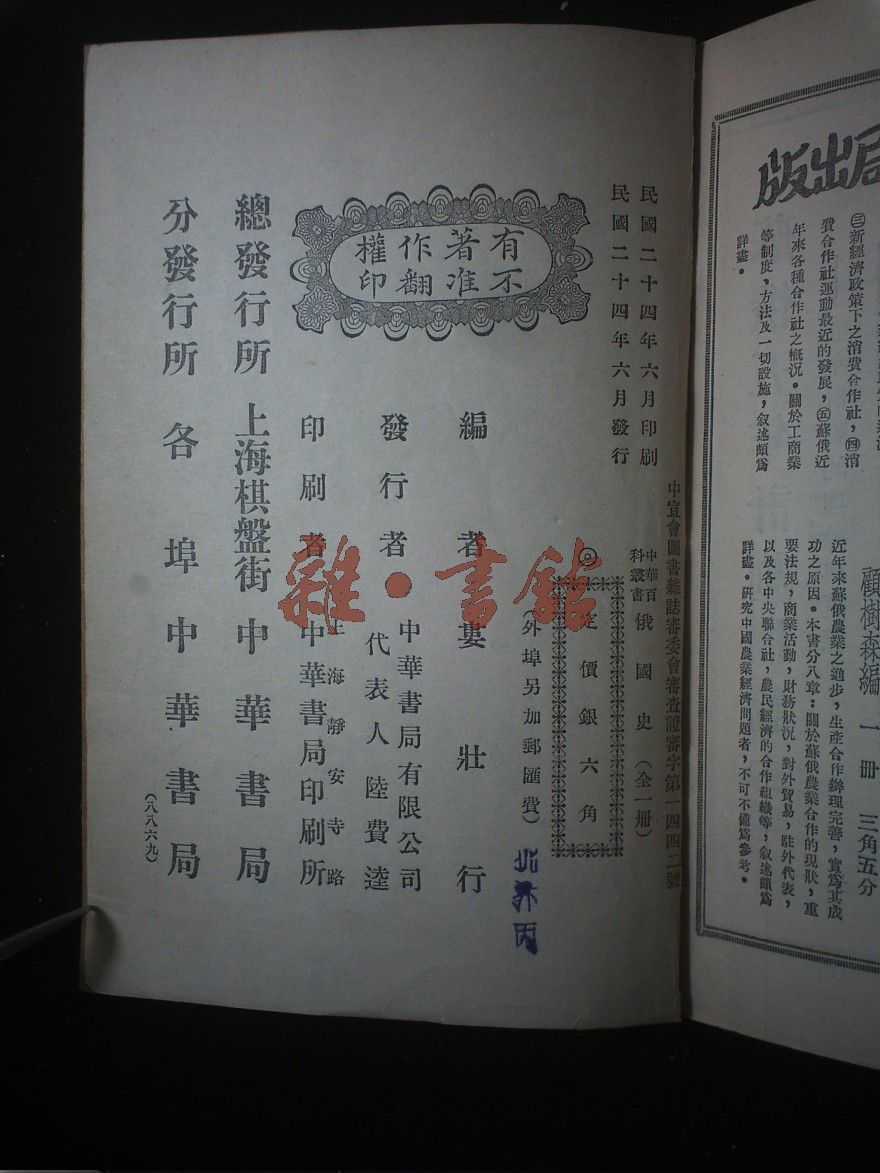 局出版
㊂新經濟政策下之消費合作社，㊃消
費合作社運動最近的發展，㊄蘇俄近
年來各種合作社之概況。關於工商業
等制度，方法及一切設施，叙述頗爲
詳盡。
顧樹森編　一册　三角五分
近年來蘇俄農業之進步，生產合作辦理完善，實爲其成
功之原因。本書分八章：關於蘇俄農業合作的現狀，重
要法規，商業活動，財務狀況，對外貿易，駐外代表，
以及各中央聯合社，農民經濟的合作組織等，叙述頗爲
詳盡。研究中國農業經濟問題者，不可不備爲參考。
中宣會圖書雜誌審委會審查證審字第一四四二號
民國二十四年六月印刷
民國二十四年六月發行
中華百科叢書 俄國史（全一册）
◎定價銀六角
（外埠另加郵匯費）
有著作權
不准翻印
編者 婁壯行
發行者 中華書局有限公司
代表人 陸費逵
印刷者 上海靜安寺路
中華書局印刷所
總發行所 上海棋盤街 中華書局
分發行所 各埠中華書局
（八八六九）
雜·書館